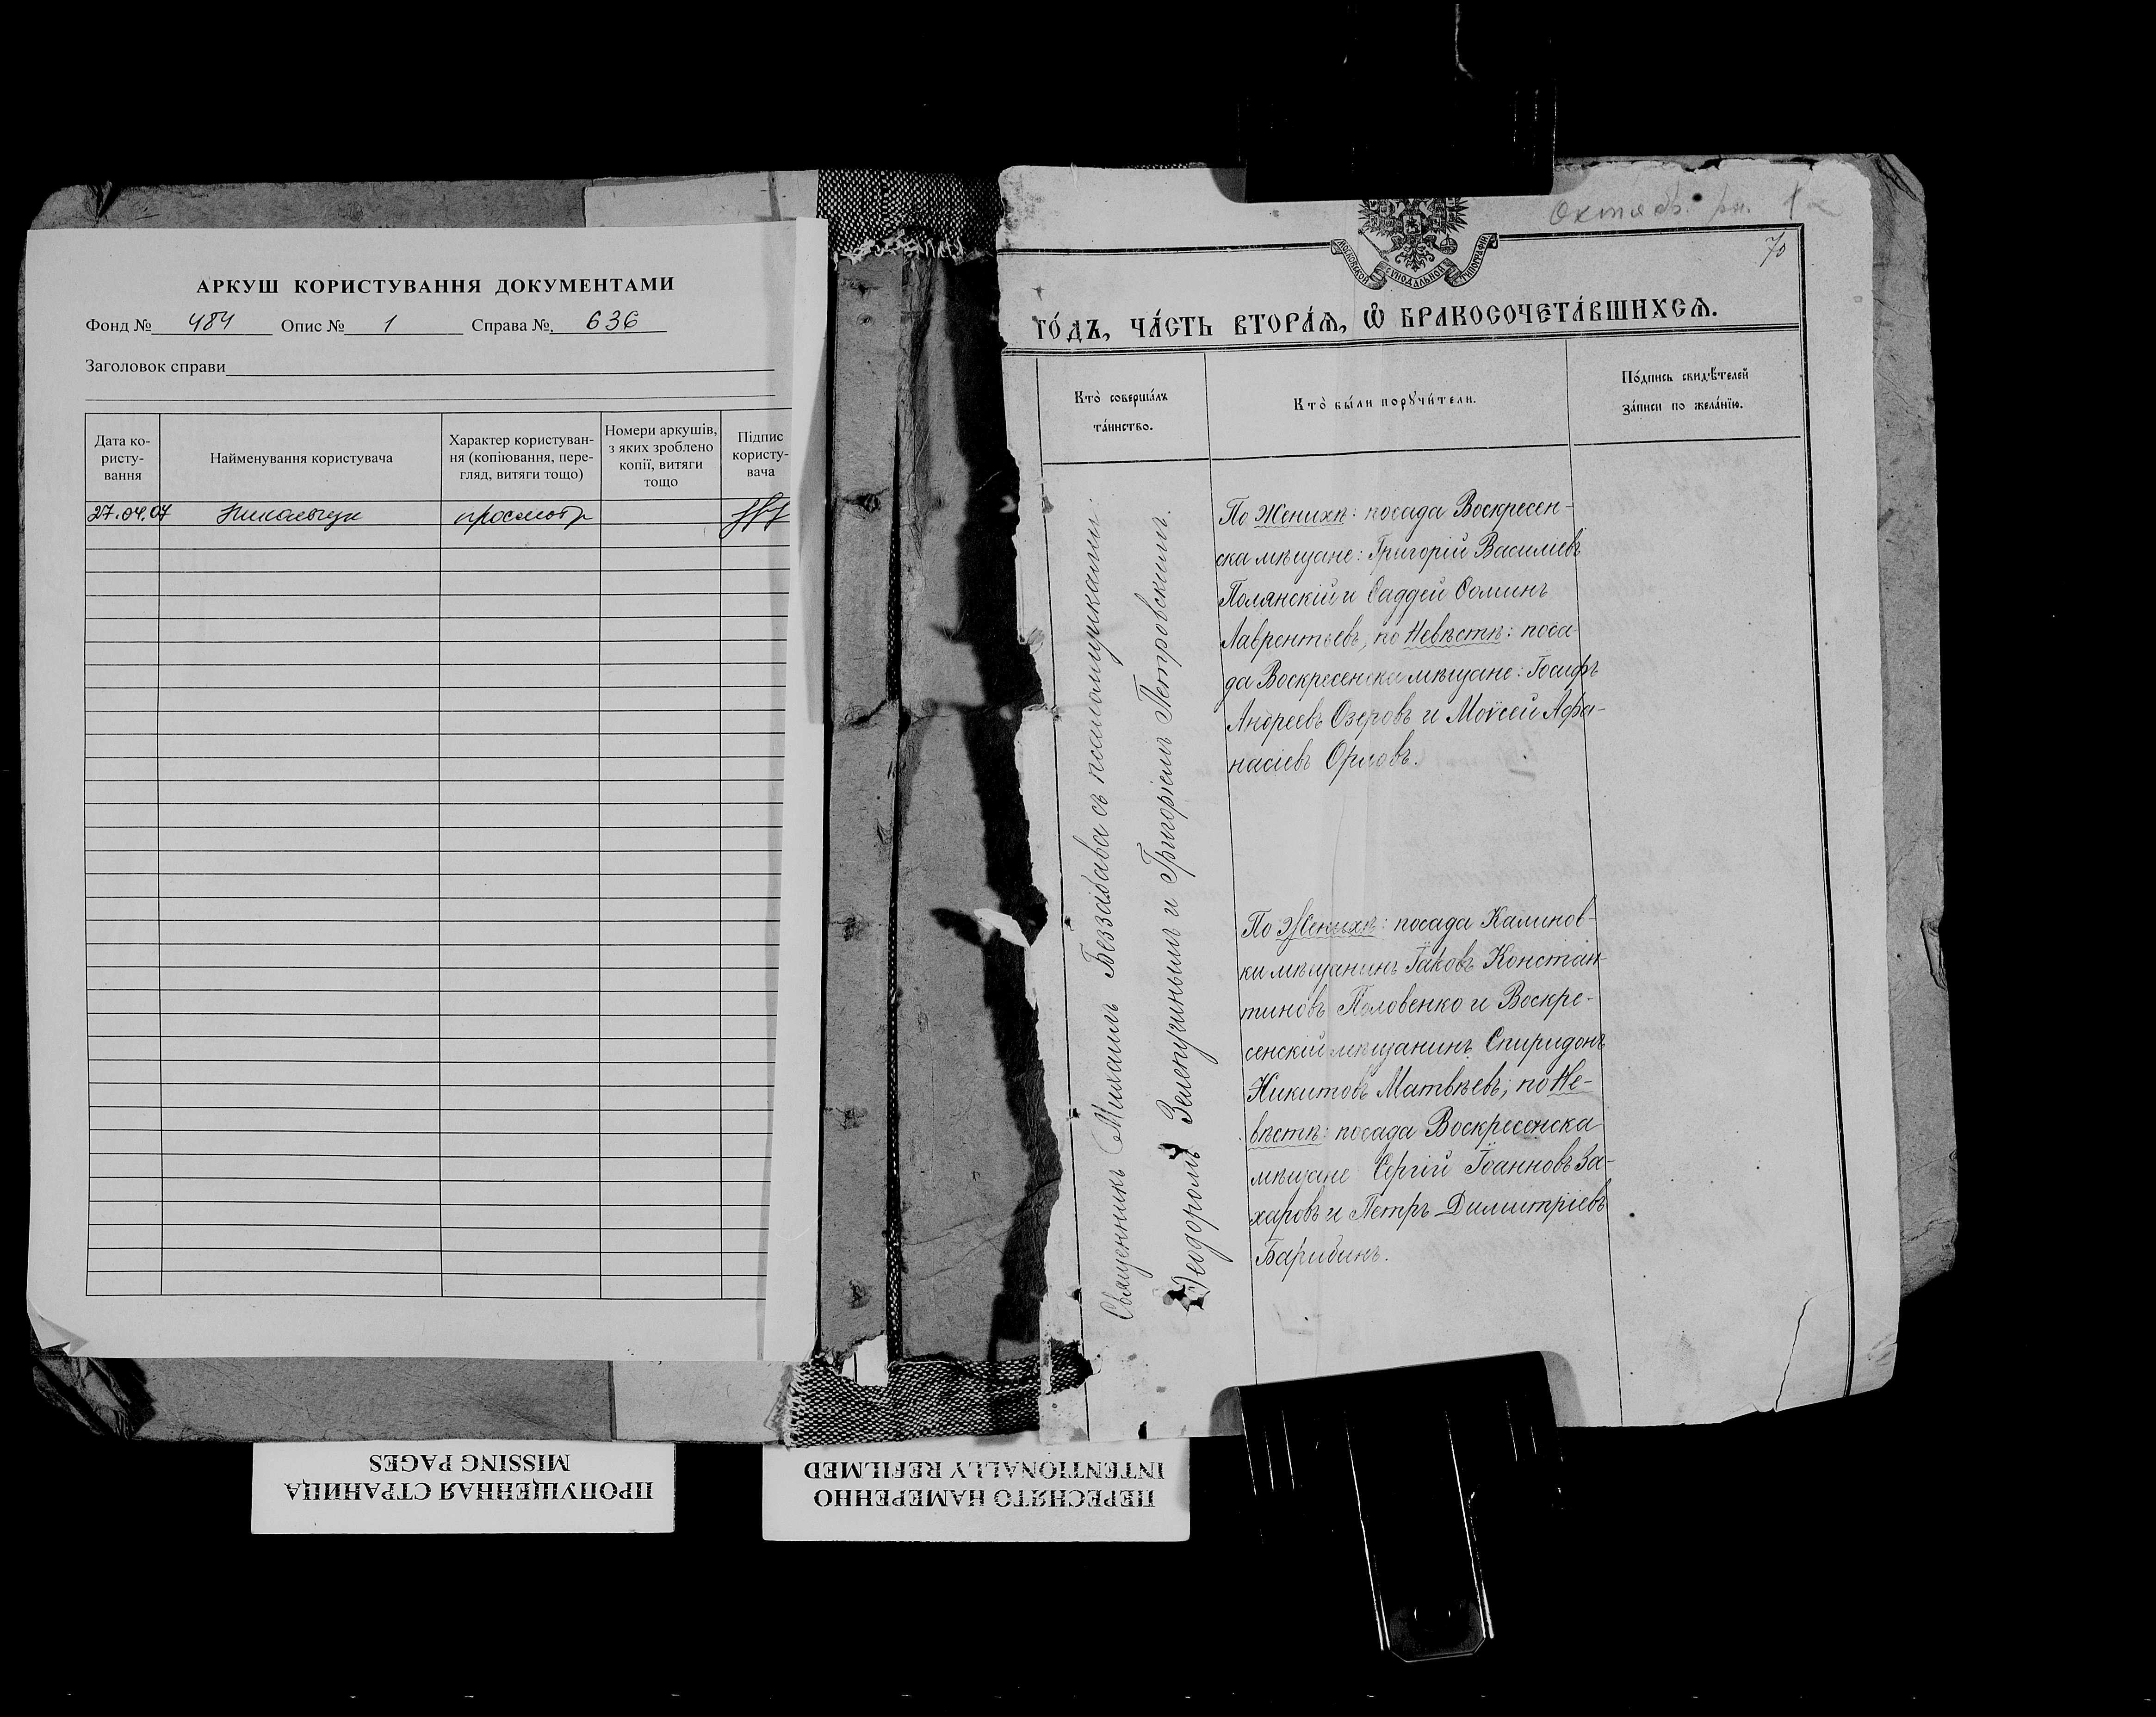 АРКУШ КОРИСТУВАННЯ ДОКУМЕНТАМИ
Фонд № 484 Опис № 1 Справа № 636
Заголовок справи
Дата ко-
ристу-
вання
Найменування користувача
Характер користуван-
ня (копіювання, пере-
гляд, витяги тощо)
Номери аркушів,
з яких зроблено
копії, витяги
тощо
Підпис
користу-
вача
27.04.07 просмотр
70
МОСКОВСКОЙ СѴНОДАЛЬНОЙ ТИПОГРАФІИ
ГО́ДЪ, ЧА́СТЬ ВТОРА́Ѧ, Ѽ БРАКОСОЧЕТА́ВШИХСѦ.
Кто̀ соверша́лъ
та́инство.
Кто̀ бы́ли порꙋчи́тели.
По́дпись свидѣ́телей
за́писи по жела́нїю.
Священникъ Михаилъ Беззабава съ псаломщиками
Ѳеодоромъ Зелепугинымъ и Григоріемъ Петровскимъ.
По Женихѣ: посада Воскресен-
ска мѣщане: Григорій Василіевъ
Полянскій и Ѳаддей Ѳоминъ
Лаврентьевъ, по Невѣстѣ: поса-
да Воскресенска мѣщане: Іосифъ
Андреевъ Озеровъ и Моѵсей Афа-
насіевъ Орловъ.
По Женихѣ: посада Калинов-
ки мѣщанинъ Іаковъ Констан-
тиновъ Половенко и Воскре-
сенскій мѣщанинъ Спиридонъ
Никитовъ Матвѣевъ; по Не-
вѣстѣ: посада Воскресенска
мѣщане Сергій Іоанновъ За-
харовъ и Петръ Димитріевъ
Барибинъ.
ПРОПУЩЕННАЯ СТРАНИЦА
MISSING PAGES
ПЕРЕСНЯТО НАМЕРЕННО
INTENTIONALLY REFILMED